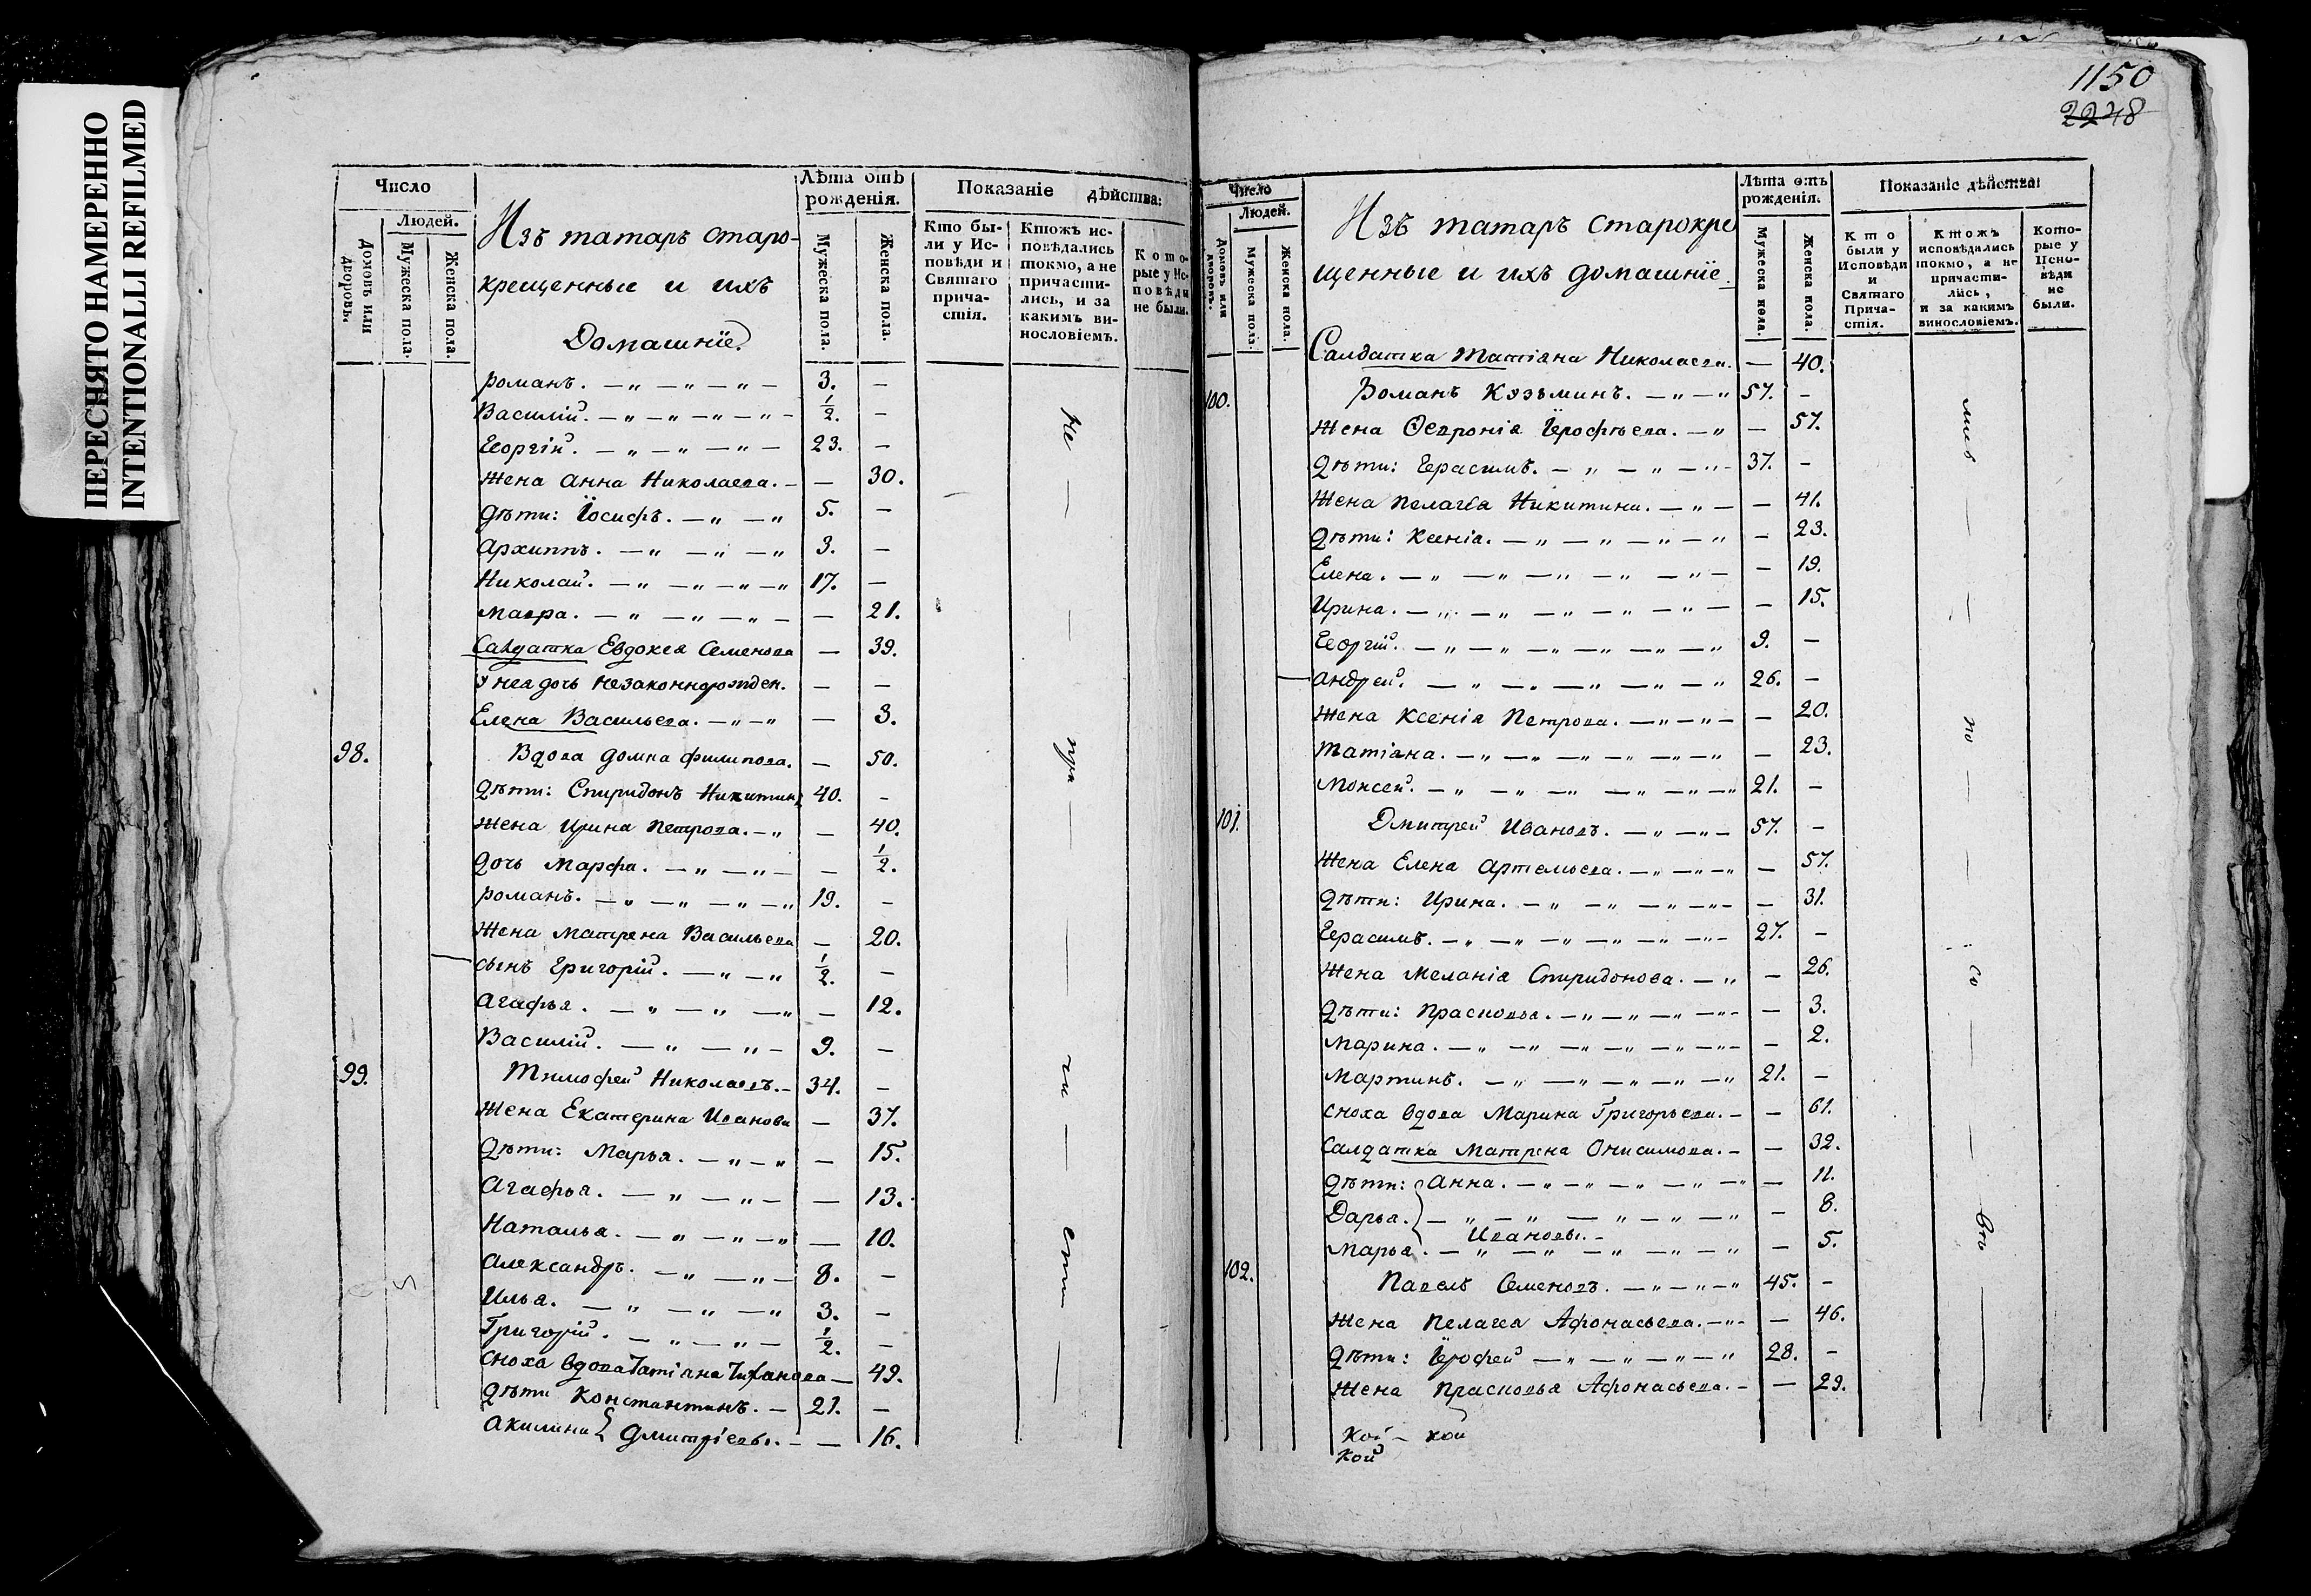 ПЕРЕСНЯТО НАМЕРЕННО
INTENTIONALLI REFILMED
Число
Людей.
Домовъ или дворовъ.
Мужеска пола.
Женска пола.
Изъ татаръ старо-
крещенные и ихъ
Домашнїе.
Лѣта отъ рожденія.
Мужеска пола.
Женска пола.
Показаніе дѣйства:
Кто бы-
ли у Ис-
повѣди и
Святаго
прича-
стія.
Ктожъ ис-
повѣдались
токмо, а не
причасти-
лись, и за
какимъ ви-
нословіемъ.
Кото-
рые у Ис-
повѣди
не были.
Романъ. — „ — „ — „ — 3. —
Василій. — „ — „ — „ — „ — ½. —
Георгій. — „ — „ — „ — 23. —
Жена Анна Николаева. — — 30.
Дѣти: Їосифъ. — „ — „ 5. —
Архиппъ. — „ — „ — „ 3. —
Николай. — „ — „ — „ — „ 17. —
Мавра. — „ — „ — „ — — 21.
Салдатка Евдокеа Семенова — 39.
У неа дочь незаконнорожден. — —
Елена Васильева. — „ — „ — 3.
98. Вдова Домна Филипова. — 50.
Дѣти: Спиридонъ Никитинъ 40. —
Жена Ирина Петрова. — „ — 40.
Дочь Марфа. — „ — „ — — ½.
Романъ. — „ — „ — „ — „ 19. —
Жена Матрена Васильева — 20.
Сынъ Григорій. — „ — „ ½. —
Агафья. — „ — „ — „ — 12.
Василій. — „ — „ — 9. —
99. Тимофей Николаевъ. — 34. —
Жена Екатерина Иванова — 37.
Дѣти: Марья. — „ — „ — 15.
Агафья. — „ — „ — — 13.
Наталья. — „ — „ — „ — 10.
Александръ. — „ — „ — 8. —
Илья. — „ — „ — „ 3. —
Григорій. — „ — „ — ½. —
Сноха вдова Татіана Тиханова — 49.
Дѣти Константинъ. — 21. —
Акилина } Дмитріевы. — — 16.
Не — — при — — ча — сти — —
1150
2248
Число
Людей.
Домовъ или дворовъ.
Мужеска пола.
Женска пола.
Изъ татаръ старокре
щенные и ихъ домашнїе.
Лѣта отъ рожденія.
Мужеска пола.
Женска пола.
Показаніе дѣйства:
Кто
были у
Исповѣди
и
Святаго
Прича-
стія.
Ктожъ
исповѣдались
токмо, а не
причасти-
лись,
и за какимъ
винословіемъ.
Кото-
рые у
Испо-
вѣди
не
были.
Салдатка Татіана Николаева. — 40.
100. Романъ Козьминъ. — „ — „ 57. —
Жена Февронія Їерофѣева. — „ — 57.
Дѣти: Герасимъ. — „ — „ — „ — 37. —
Жена Пелагѣа Никитина. — „ — — 41.
Дѣти: Ксенія. — „ — „ — „ — „ — 23.
Елена. — „ — „ — „ — „ — „ — — 19.
Ирина. — „ — „ — „ — „ — „ — — 15.
Георгій. — „ — „ — „ — „ — „ — „ 9. —
Андрей. — „ — „ — „ — „ — „ 26. —
Жена Ксенія Петрова. — „ — „ — — 20.
Татіана. — „ — „ — „ — „ — „ — „ — 23.
Моисей. — „ — „ — „ — „ — „ — „ 21. —
101. Дмитрей Ивановъ. — „ — „ — 57. —
Жена Елена Артемьева. — „ — „ — „ — 57.
Дѣти: Ирина. — „ — „ — „ — „ — — 31.
Герасимъ. — „ — „ — „ — „ — „ — „ — 27. —
Жена Меланіа Спиридонова. — „ — 26.
Дѣти: Прасковья. — „ — „ — „ — „ — — 3.
Марина. — „ — „ — „ — „ — „ — „ — — 2.
Мартинъ. — „ — „ — „ — „ — „ 21. —
Сноха вдова Марина Григорьева. — — 61.
Салдатка Матрена Онисимова. — — 32.
Дѣти: Анна. — „ — „ — „ — „ — „ — 11.
Дарья. } — „ — „ — „ — „ — „ — 8.
Ивановы. —
Марья. — „ — „ — „ — „ — „ — 5.
102. Павелъ Семеновъ. — „ — „ — „ 45. —
Жена Пелагеа Афонасьева. — „ — — 46.
Дѣти: Їерофей — „ — „ — „ — „ 28. —
Жена Прасковья Афонасьева. — — 29.
Кой — кой
Кой
лись — — по — — со — — вѣ —